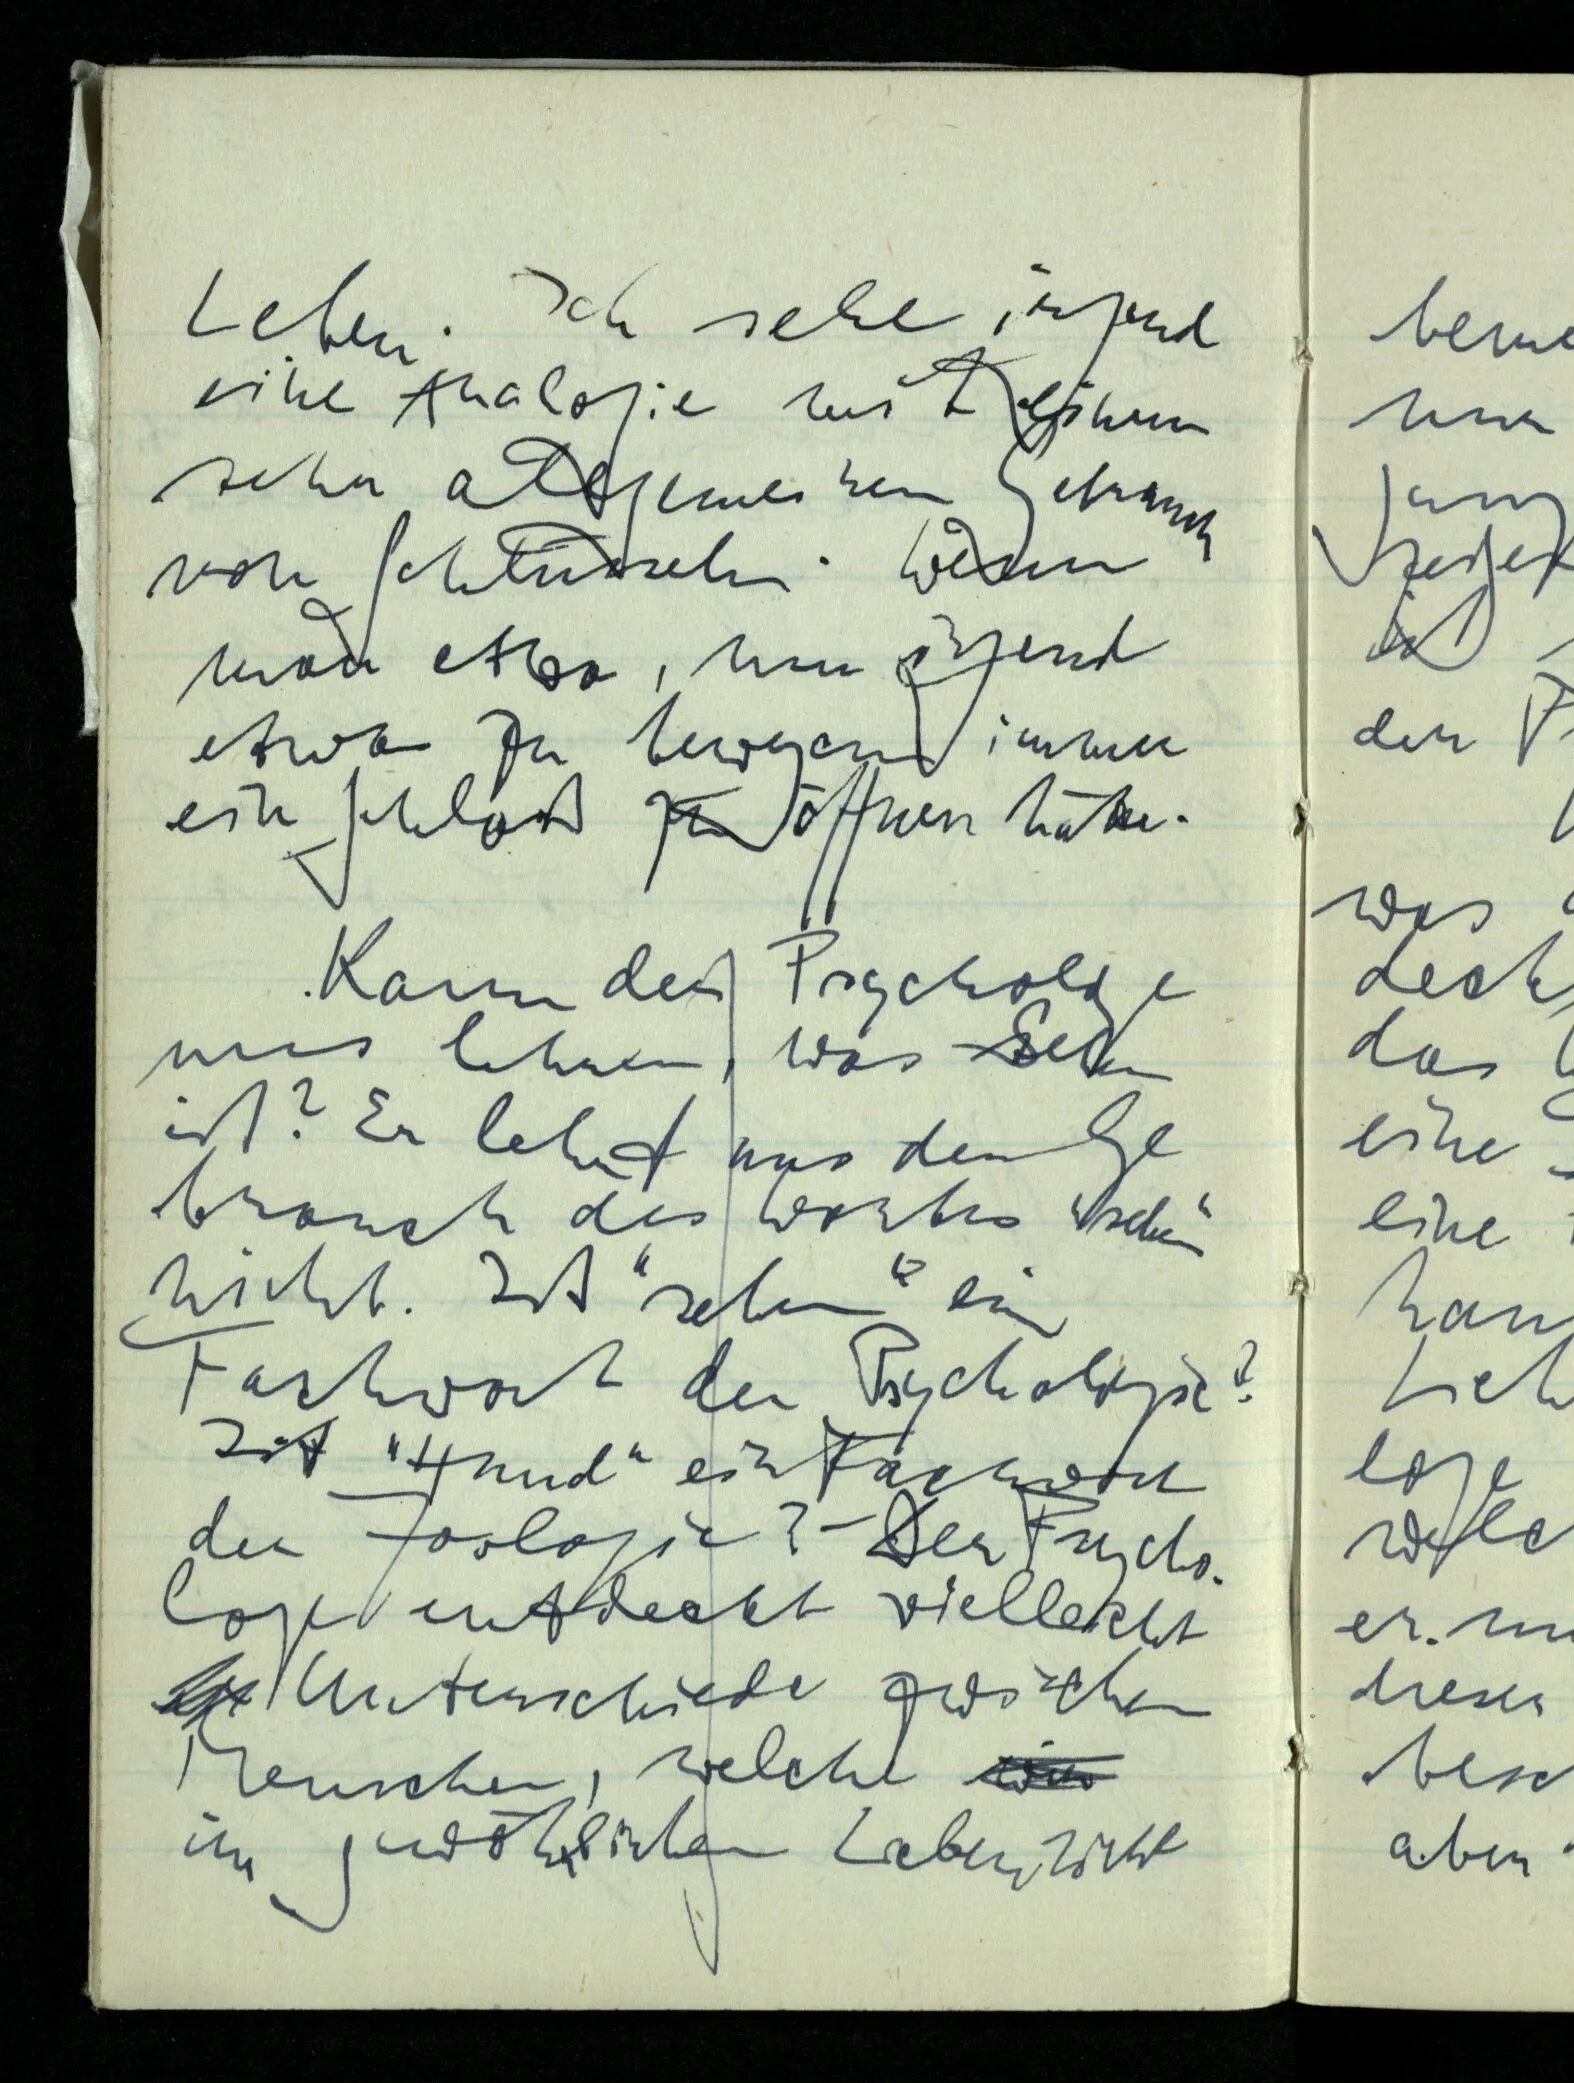 Leben. Ich sehe irgend
eine Analogie mit einem
sehr allgemeinen Gebrauch
von Schlüsseln. Wenn
man etwa, um irgend
etwas zu bewegen immer
ein Schloß zu öffnen hätte.
Kann der Psychologe
uns lehren, was Sehen
ist? Er lehrt uns den Ge
brauch des Wortes "sehen"
nicht. Ist "sehen" ein
Fachwort der Psychologie?
Ist "Hund" ein Fachwort
der Zoologie? – Der Psycho-
loge entdeckt vielleicht
Unterschiede zwischen
Menschen, welche
im gewöhnlichen Leben nicht
beme
nun
jung
zeigt
ist
der
was
deck
das
eine
eine
han
Lich
loge
welc
er. un
dieser
besc
aber